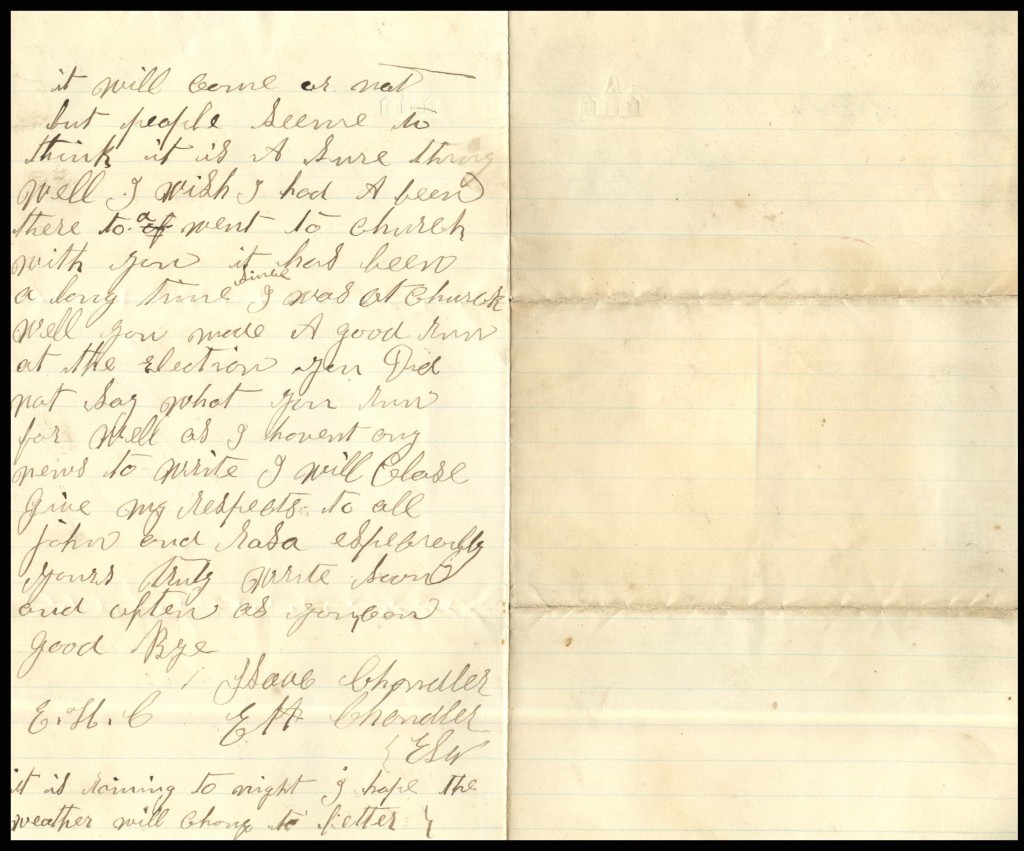 it will come or not
but people seeme to
think it is A sure thing
well I wish I had A been
there to a went to church
with you it has been
a long time since I was at church
well you made A good run
at the Election you Did
not say what you run
for well as I havent any
news to write I will Close
Give my respects to all
John and Rosa especially
yours truly write soon
and often as you can
good Bye
Chandler
E. H. C E H Chandler
it is raining to night I hope the
weather will chang to better